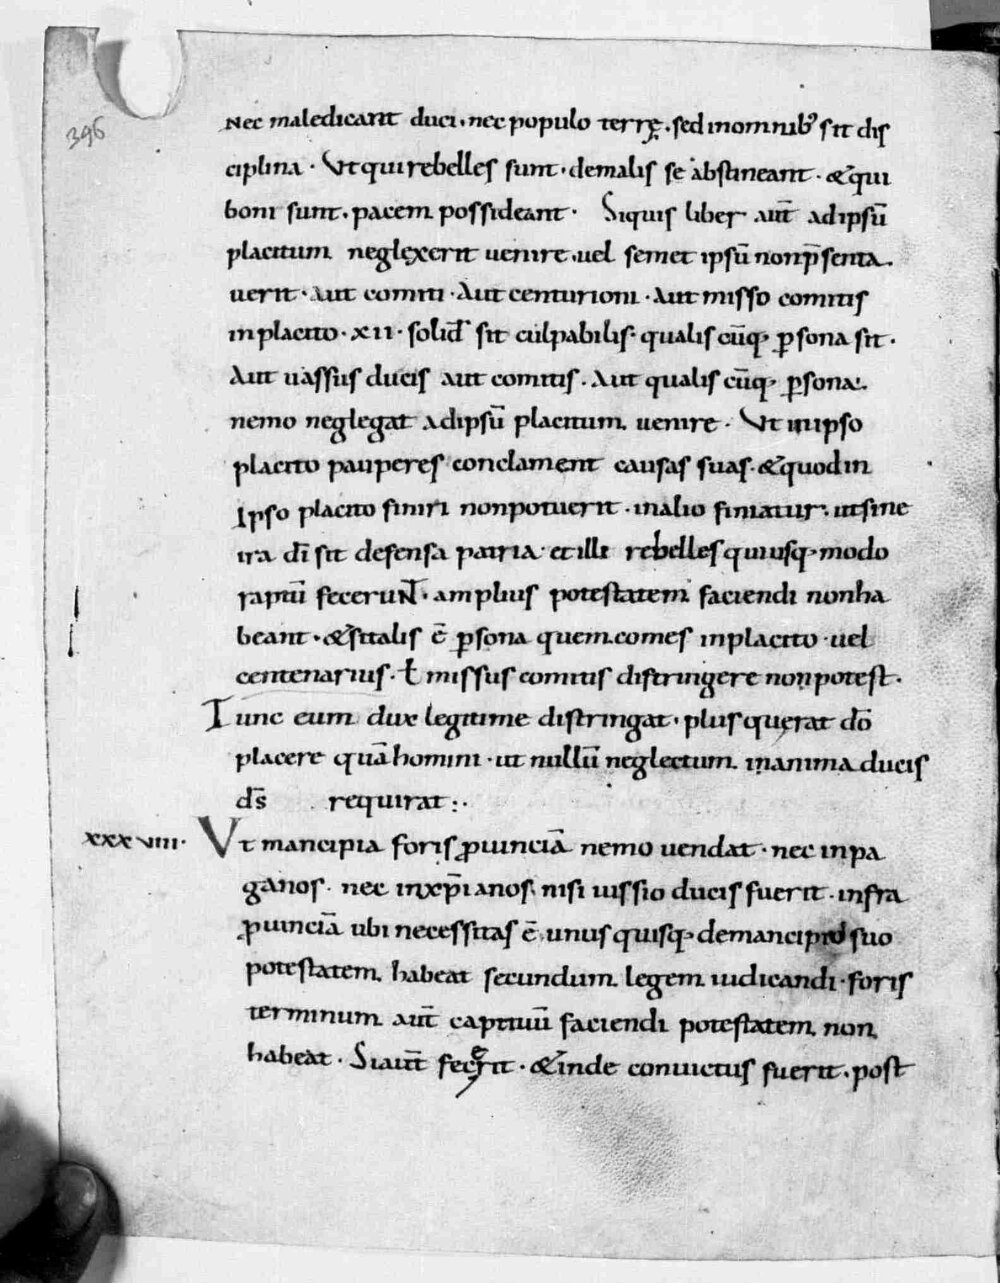 396
nec maledicant duci · nec populo terrę · sed inomnib; sit dis
ciplina · Ut qui rebelles sunt · demalis se abstineant · &qui
boni sunt · pacem possideant · Siquis liber aut̄ adipsū
placitum neglexerit uenire · uel semet ipsū nonp̄senta
uerit · aut comiti · Aut centurioni · Aut misso comitis
inplacito · xii · solid̄ sit culpabilis · qualis cūq; ꝑsona sit ·
Aut uassus ducis aut comitis · Aut qualis cūq; ꝑsona ·
nemo neglegat adipsū placitum uenire · Ut inipso
placito pauperes conclament causas suas · &quod in
Ipso placito finiri nonpotuerit · inalio finiatur · utsine
ira dī sit defensa patria · et illi rebelles quiusq; modo
raptū feceruNT · amplius potestatem faciendi nonha
beant · &sitalis ē ꝑsona quem comes inplacito · uel
centenarius · ł missus comitis distringere nonpotest ·
Tunc eum dux legitime distringat · plus querat dō
placere quā homini · ut nullū neglectum inanima ducis
ds̄ requirat :·
xxxviiii · Ut mancipia foris ꝓuinciā nemo uendat · nec inpa
ganos · nec inxp̄ianos · nisi iussio ducis fuerit · infra
ꝓuinciā ubi necessitas ē unus quisq; demancipio suo
potestatem habeat secundum legem iudicandi · foris
terminum aut̄ captiuū faciendi potestatem non
habeat · Siaut̄ fecerit · &inde conuictus fuerit · post